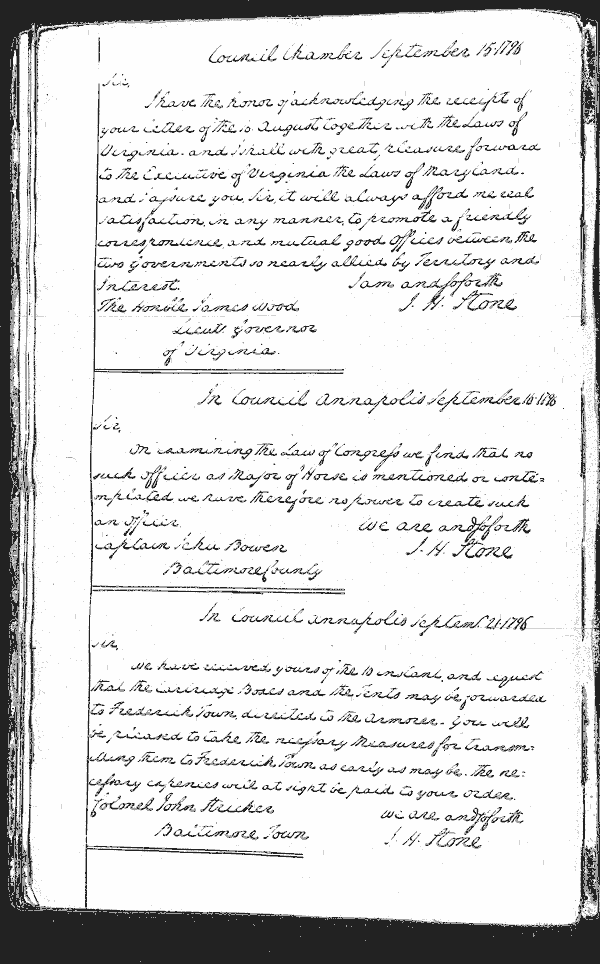 Council Chamber September 15. 1796
Sir,
I have the honor of acknowledging the receipt of
your letter of the 10. August together with the Laws of
Virginia. and I shall with great pleasure forward
to the Executive of Virginia the Laws of Maryland.
and I assure you, Sir, it will always afford me real
satisfaction, in any manner, to promote a friendly
correspondence and mutual good Offices between the
two Governments so nearly allied by Territory and
Interest. I am and so forth
The Honble James Wood J. H. Stone
Lieut. Governor
of Virginia.
In Council Annapolis September 1796
Sir,
On examining the Law of Congress we find that no
such officer as Major of Horse is mentioned or conte=
mplated we have therefore no power to create such
an officer. We are and so forth
Captain Jehu Bowen J. H. Stone
Baltimore County
In Council Annapolis Septem. 21. 1796
Sir,
We have received yours of the instant, and request
that the Cartridge Boxes and the Tents may be forwarded
to Frederick Town, directed to the Armorer. You will
be pleased to take the necessary Measures for transm=
itting them to Frederick Town as early as may be. the ne=
cessary expences will at sight be paid to your order.
Colonel John Stricker We are and so forth
Baltimore Town J. H. Stone